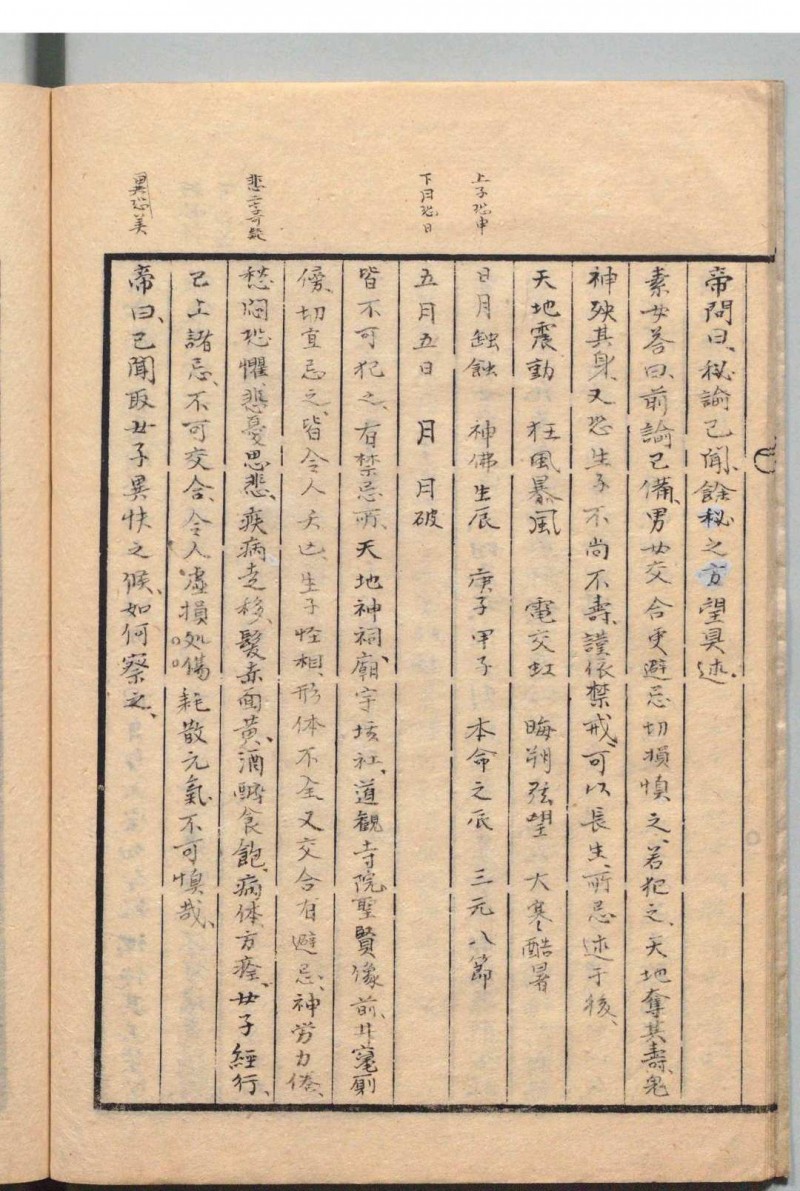 帝問曰、秘論已聞、餘秘之方望具述、
素女答曰、前論已備、男女交合更避忌切損慎之、若犯之、天地奪其壽、鬼
神殃其身、又恐生子不尚不壽、謹依禁戒、可以長生、所忌述于後、
天地震動　狂風暴風　電交虹　晦朔弦望　大寒酷暑
日月蝕蝕　神佛生辰　庚子甲子　本命之辰　三元八節
五月五日　月　月破
皆不可犯之、有禁忌所、天地神祠、廟宇垓社、道観寺院聖賢像前、井竃厠
傍、切宜忌之、皆令人夭亡、生子怪相、形体不全、又交合有避忌、神労力倦、
愁悶恐懼、悲憂思悲、疾病走移、髪赤面黄、酒酔食飽、病体方痊、女子経行、
已上諸忌、不可交合、令人虚損処傷耗散元氣、不可慎哉、
帝曰、已聞取女子異快之候、如何察之、
上子恐申
下月恐日
異恐美